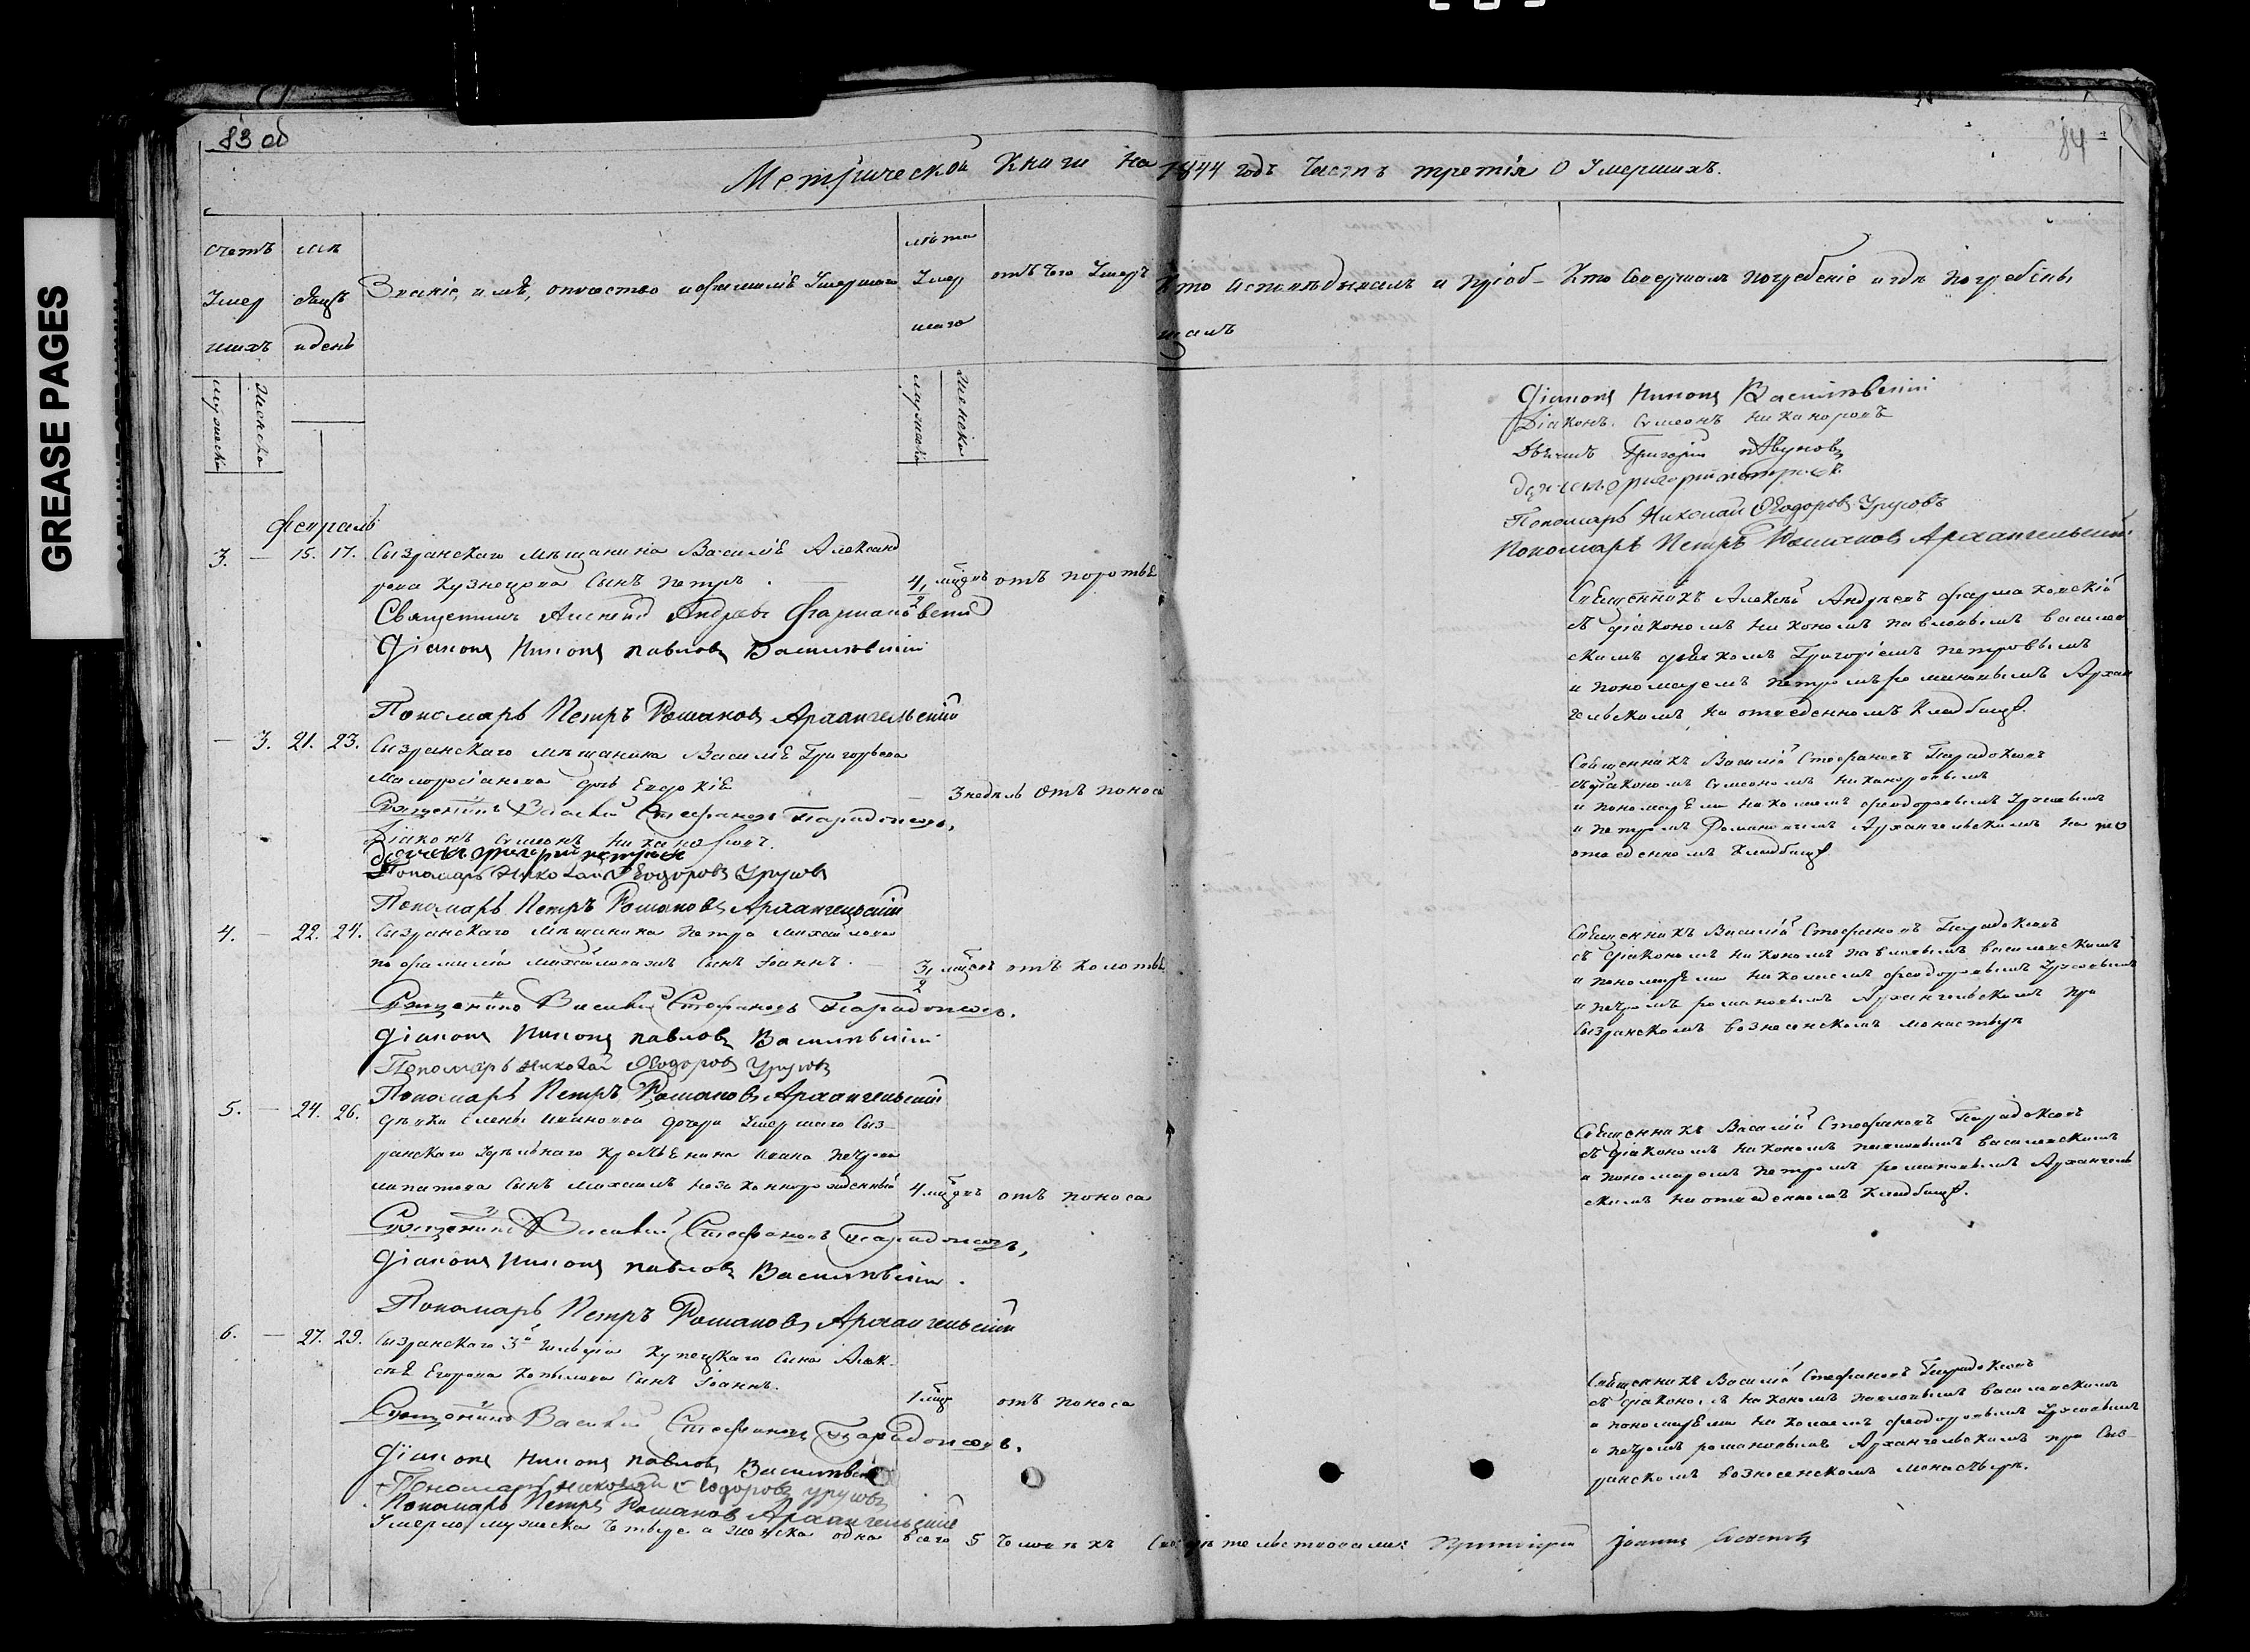 83 об
84
GREASE PAGES
Метрической Книги на 1844 годъ Часть третія О Умершихъ.
счетъ Умер шихъ
мѣ сяцъ и день
Званіе, имѣ, отчество и фамилія Умершаго
лѣта Умер шаго
отъ чего Умеръ
Кто Исповѣдывалъ и пріоб-
щалъ
Кто Совершалъ погребеніе и гдѣ погребены
мужеска
женска
мужеска
женска
Діаконъ Никонъ Василевскій
Діаконъ Сѵмеонъ Никаноровъ
Дьячекъ Григорій
дьячекъ григорий петровъ
Пономарь Николай Ѳеодоровъ Урусовъ
Пономарь Петръ Романовъ Архангельскій
Февраль
3. — 15. 17. Сызранскаго мѣщанина Василія Александ
рова Кузнецова Сынъ Петръ. — 4 1/2 мѣсяцъ отъ поротья
Священникъ Алексей Андреевъ Фармаковскій
Діаконъ Никонъ павловъ Василевскій
Пономарь Петръ Романовъ Архангельскій
Священникъ Алексѣй Андреевъ Фармаковскій
съ діакономъ Никономъ Павловымъ Василев
скимъ дьячкомъ Григоріемъ Петровымъ
и пономаремъ Петромъ романовымъ Архан
гельскимъ на отведенномъ Кладбищѣ.
— 3. 21. 23. Сызранскаго мѣщанина Василія Григорьева
дочь Евдокія — 3 недѣль отъ поноса
Священникъ Василий Стефановъ Парадоксовъ,
Діаконъ Сѵмеонъ Никаноровъ.
дьячекъ григорий петровъ
Пономарь Николай Ѳеодоровъ Урусовъ
Пономарь Петръ Романовъ Архангельскій
Священникъ Василій Стефановъ Парадоксовъ
съ діакономъ Сѵмеономъ Никаноровымъ
и пономарями Николаемъ Ѳеодоровымъ Урусовымъ
и Петромъ Романовымъ Архангельскимъ на
отведенномъ Кладбищѣ
4. — 22. 24. Сызранскаго мѣщанина Петра Михайлова
по фамиліи сынъ Іоаннъ. — 3 1/2 мѣсяцъ отъ колотья
Священникъ Василий Стефановъ Парадоксовъ.
Діаконъ Никонъ павловъ Василевскій
Пономарь Николай Ѳеодоровъ Урусовъ
Пономарь Петръ Романовъ Архангельскій
Священникъ Василій Стефановъ Парадоксовъ
съ діакономъ Никономъ Павловымъ Василевскимъ
и пономарями Николаемъ Ѳеодоровымъ Урусовымъ
и петромъ романовымъ Архангельскимъ при
Сызранскомъ вознесенскомъ монастырѣ
5. — 24. 26. дѣвки Елены Ивановой дочери Умершаго Сыз-
ранскаго Удѣльнаго Крестьянина Ивана Петрова
сынъ Михаилъ незаконнорожденный 4 мѣсяцъ отъ поноса
Священникъ Василий Стефановъ Парадоксовъ,
Діаконъ Никонъ павловъ Василевскій.
Пономарь Петръ Романовъ Архангельскій
Священникъ Василій Стефановъ Парадоксовъ
съ діакономъ Никономъ Павловымъ Василевскимъ
и пономаремъ Петромъ романовымъ Архангель
скимъ на отведенномъ Кладбищѣ.
6. — 27. 29. Сызранскаго 3й гильдіи Купецкаго сына Алек-
сѣя Егорова Копылова Сынъ Іоаннъ. 1 мѣсяц отъ поноса
Священникъ Василий Стефановъ Парадоксовъ.
Діаконъ Никонъ павловъ Василевскій
Пономарь Николай Ѳеодоровъ урусовъ
Пономарь Петръ Романовъ Архангельскій
Священникъ Василій Стефановъ Парадоксовъ
съ діакономъ Никономъ Павловымъ Василевскимъ
и пономарями Николаемъ Ѳеодоровымъ Урусовымъ
и петромъ романовымъ Архангельскимъ при Сыз-
ранскомъ вознесенскомъ монастырѣ.
Умерло мужеска четыре а женска одна всего 5 Человѣкъ Свидѣтельствовали: Іоаннъ